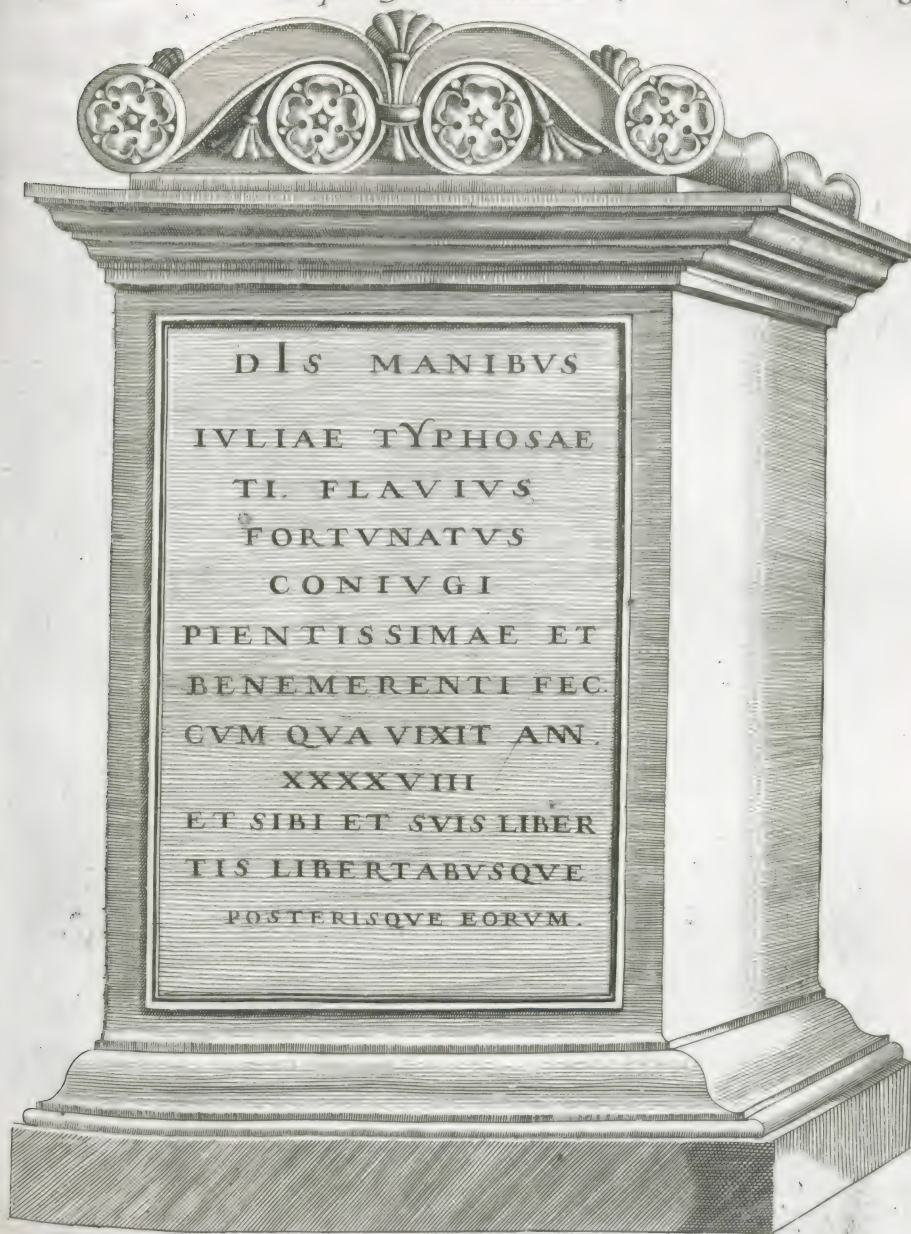 DIS MANIBVS
IVLIAE TYPHOSAE
TI. FLAVIVS
FORTVNATVS
CONIVGI
PIENTISSIMAE ET
BENEMERENTI FEC.
CVM QVA VIXIT ANN.
XXXXVIII
ET SIBI ET SVIS LIBER
TIS LIBERTABVSQVE
POSTERISQVE EORVM.